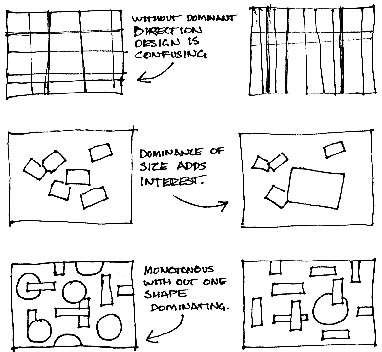 WITHOUT DOMINANT
DIRECTION
DESIGN IS
CONFUSING.
DOMINANCE OF
SIZE ADDS
INTEREST.
MONOTONOUS
WITH OUT ONE
SHAPE
DOMINATING.